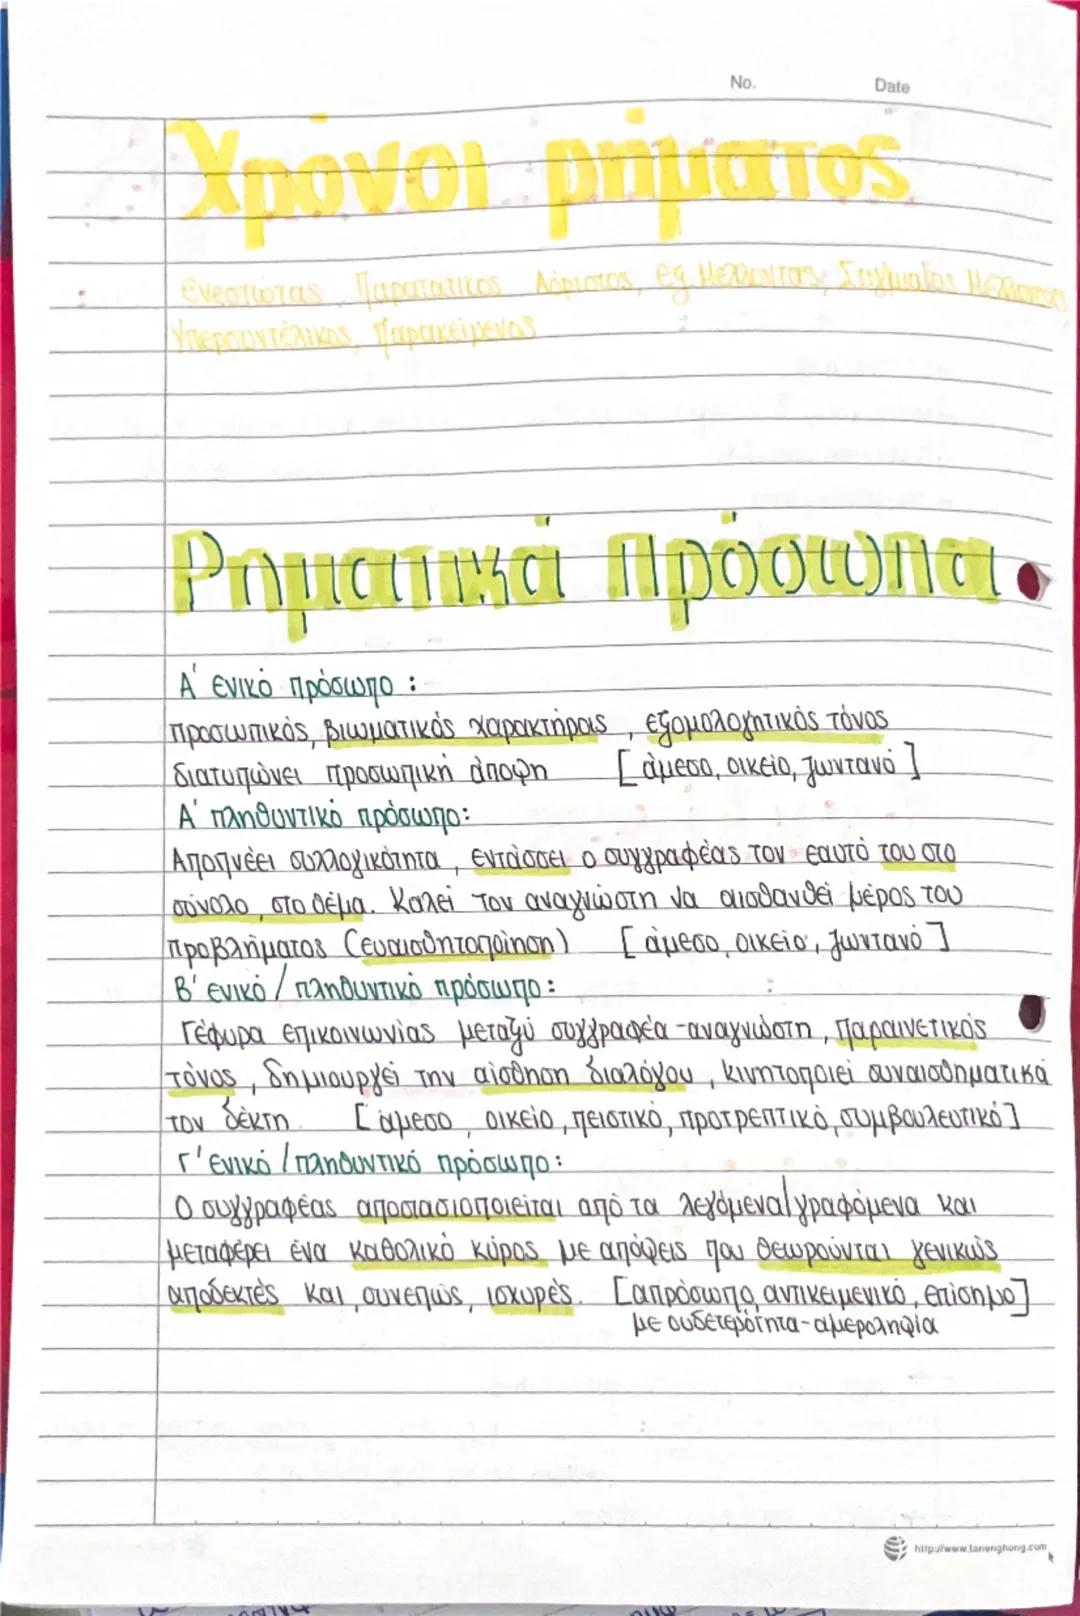 No. Date
Χρόνοι ρήματος
Ενεστώτας, Παρατατικός Αόριστος, εξ. Μέλλοντας, Στιγμιαίος Μέλλοντας
Υπερσυντέλικος, Παρακείμενος
Ρηματικά πρόσωπα
Α' ενικό πρόσωπο :
προσωπικός, βιωματικός χαρακτήρας , εξομολογητικός τόνος
διατυπώνει προσωπική άποψη [άμεσο, οικείο, ζωντανό]
Α' πληθυντικό πρόσωπο:
Αποπνέει συλλογικότητα , εντάσσει ο συγγραφέας τον εαυτό του στο
σύνολο, στο θέμα. Καλεί τον αναγνώστη να αισθανθεί μέρος του
προβλήματος (ευαισθητοποίηση) [άμεσο, οικείο, ζωντανό]
Β' ενικό / πληθυντικό πρόσωπο:
Γέφυρα επικοινωνίας μεταξύ συγγραφέα-αναγνώστη, παραινετικός
τόνος, δημιουργεί την αίσθηση διαλόγου, κινητοποιεί συναισθηματικά
τον δέκτη. [άμεσο, οικείο, πειστικό, προτρεπτικό, συμβουλευτικό]
Γ' ενικό / πληθυντικό πρόσωπο:
Ο συγγραφέας αποστασιοποιείται από τα λεγόμενα/γραφόμενα και
μεταφέρει ένα καθολικό κύρος με απόψεις που θεωρούνται γενικώς
αποδεκτές και, συνεπώς, ισχυρές. [απρόσωπο, αντικειμενικό, επίσημο]
με ουδετερότητα-αμεροληψία
http://www.tanenghong.com